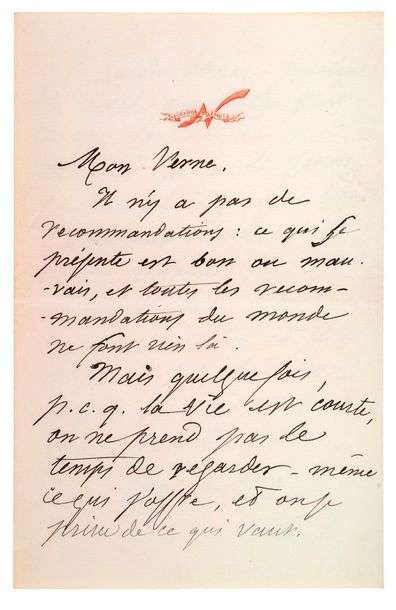 Mon Verne.
Il n'y a pas de
recommandations : ce qui se
présente est bon ou mau-
-vais, et toutes les recom-
-mandations du monde
ne font rien là.
Mais quelquefois,
p.c.q. la vie est courte,
on ne prend pas le
temps de regarder - même
ce qui s'offre, et on se
prive de ce qui vaut.